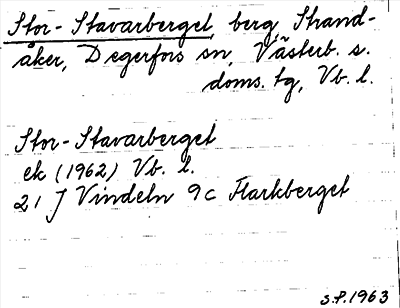 Stor-Stavarberget, berg, Strand-
åker, Degerfors sn, Västerb. s.
doms. tg, Vb. l.
Stor-Stavarberget
ek (1962) Vb. l.
21 J Vindeln 9c Flarkberget
S.P. 1963